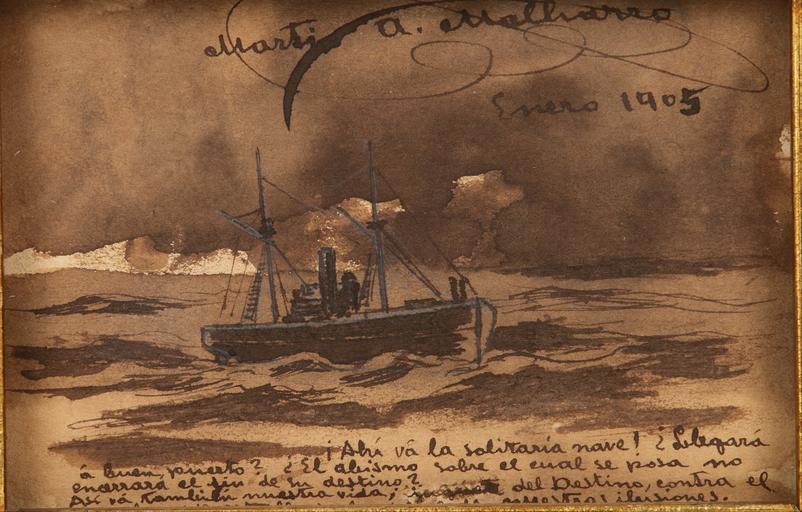 Martin A. Malharro
Enero 1905
¡Ahí vá la solitaria nave! ¿Llegará
á buen puerto? ¿El abismo sobre el cual se posa no
encerrará el fin de su destino?
Así vá también nuestra vida, juguete del Destino, contra el
nuestras ilusiones.